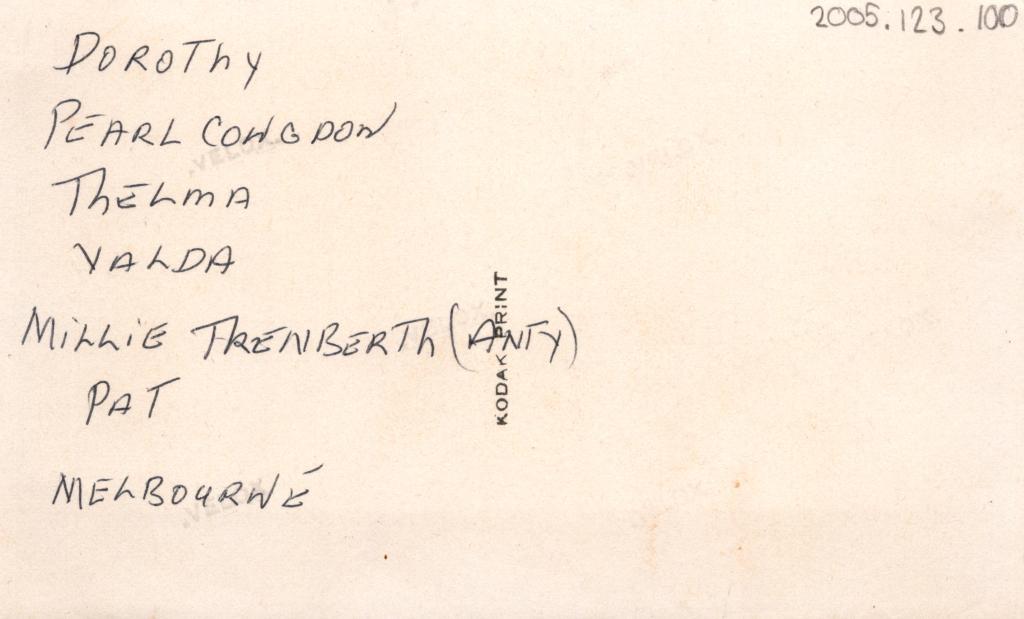 2005.123.100
DOROThy
PEARL CONGDON
ThELMA
VALDA
MiLLiE TRENBERTh (ANTY)
PAT
MELBOURNE
KODAK PRINT
VELOX
VELOX